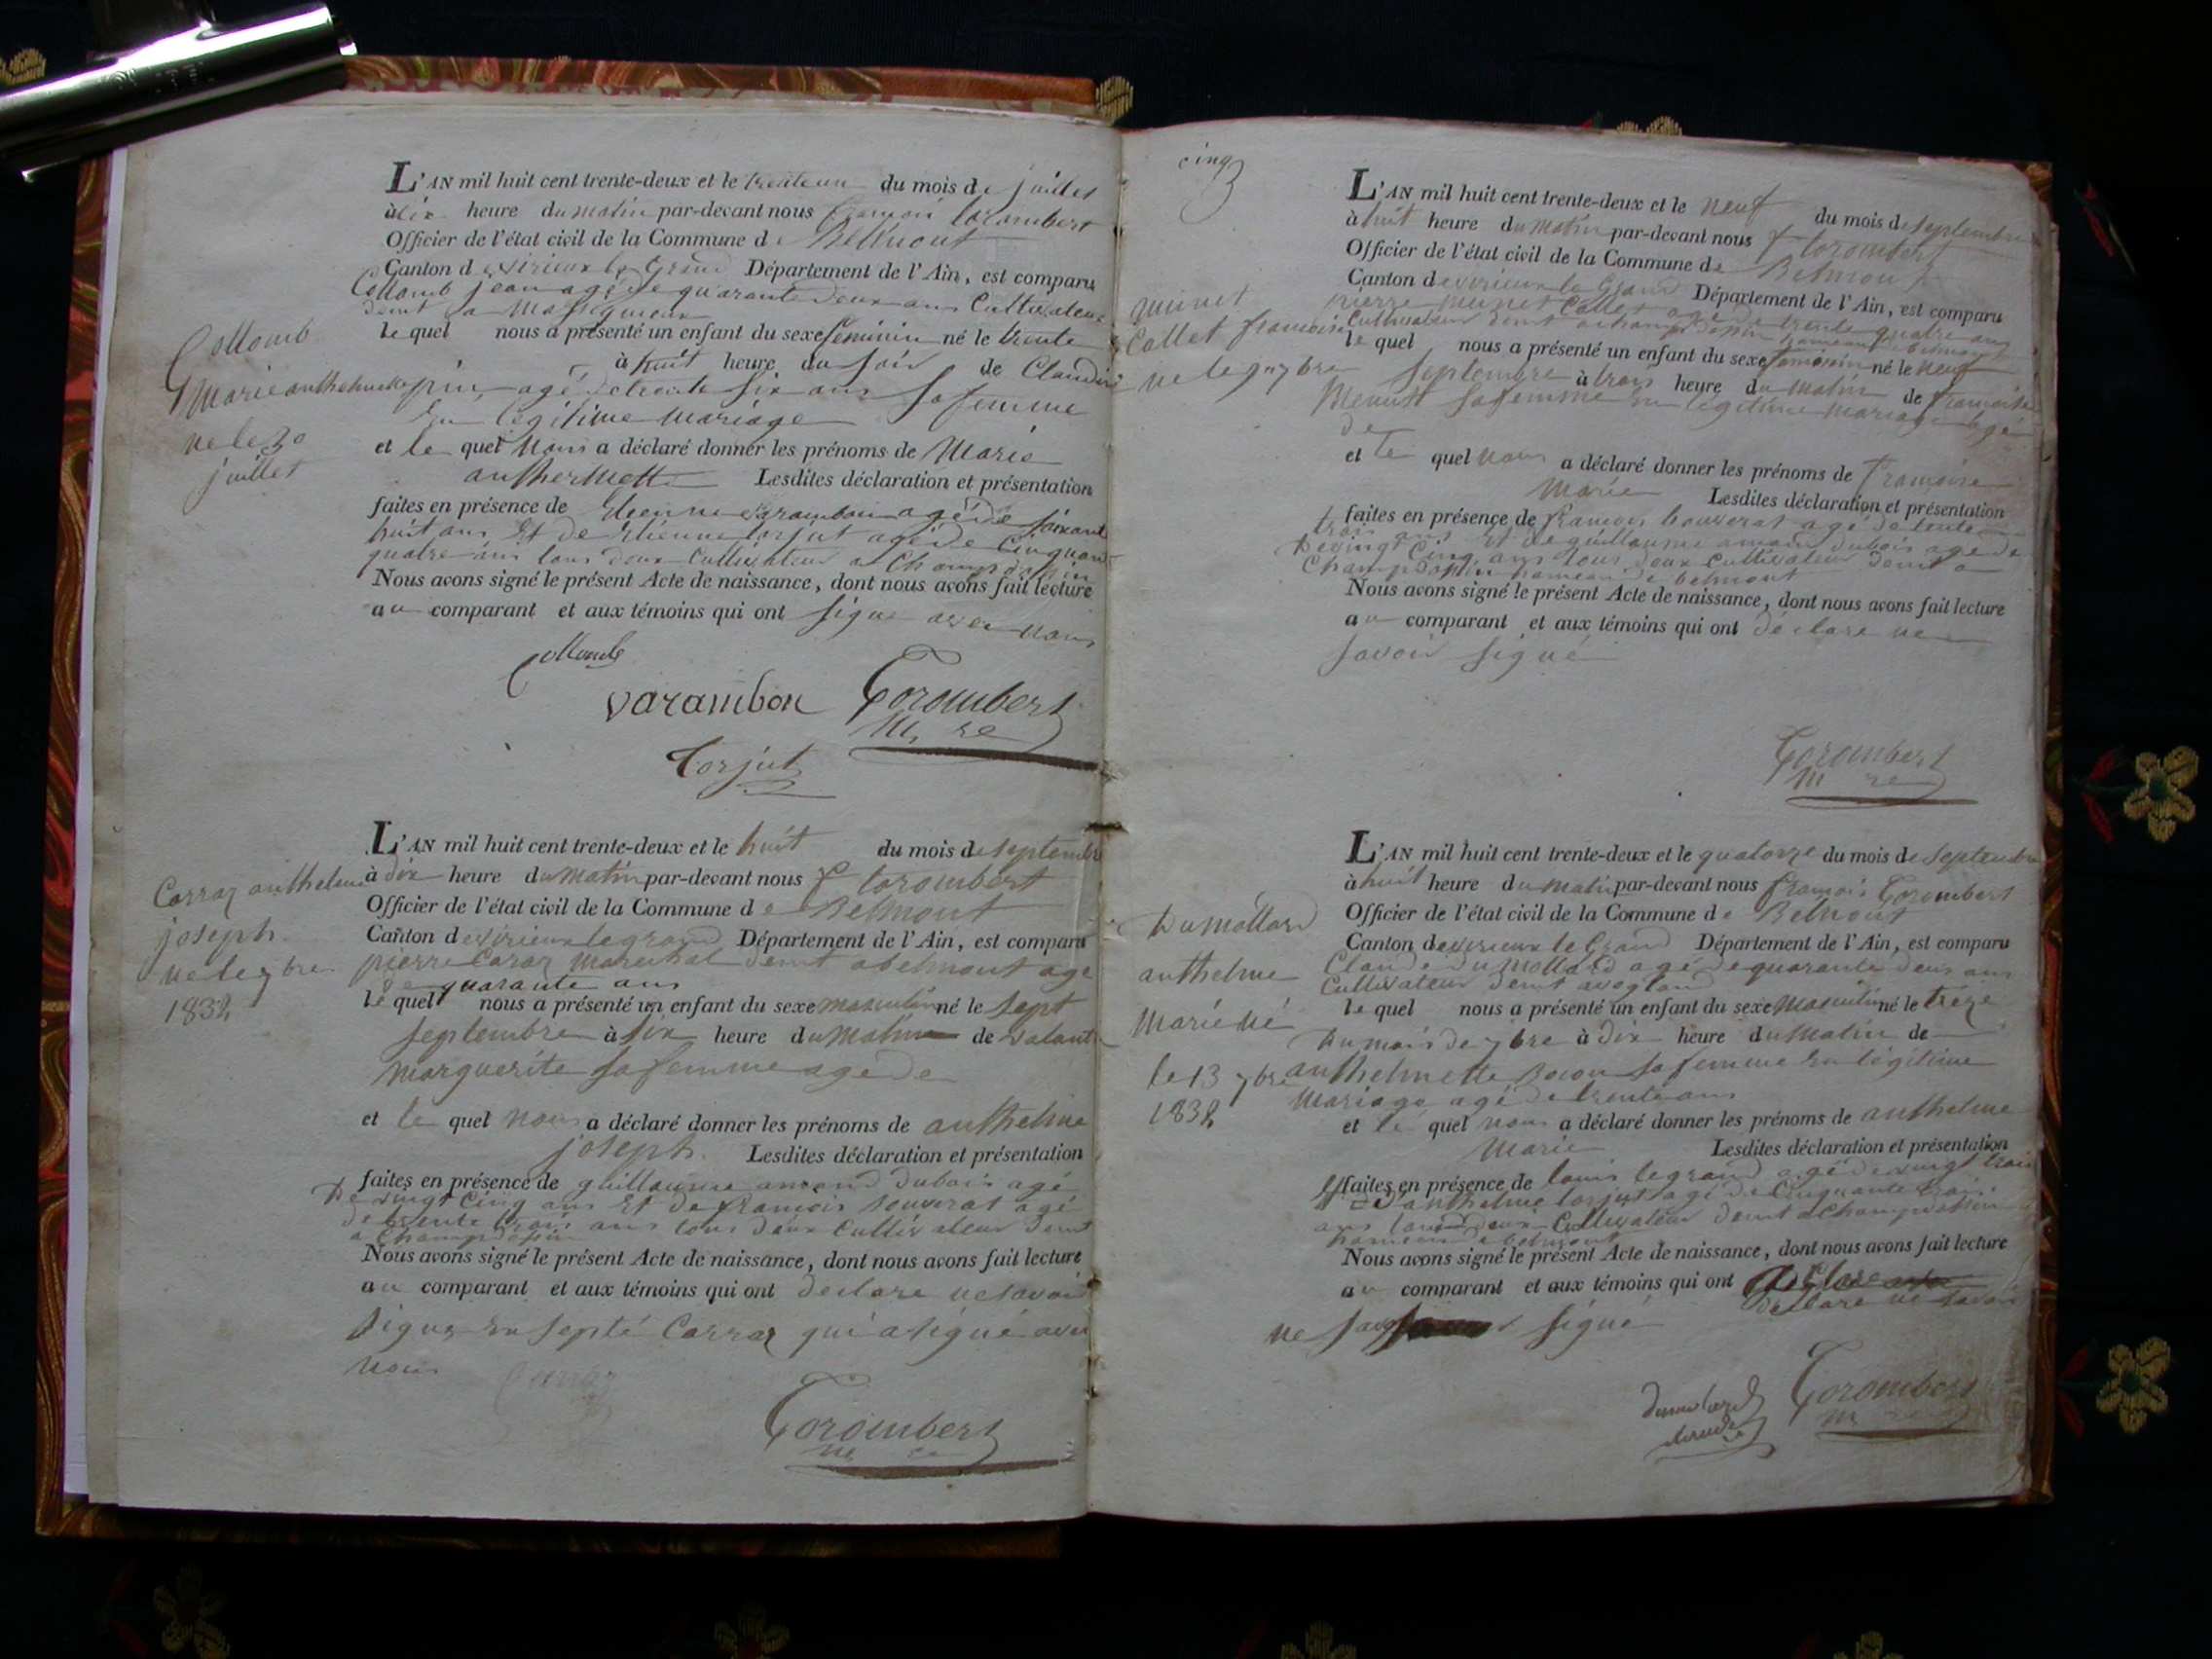 L'AN mil huit cent trente-deux et le trente un du mois de juillet
à dix heure du matin par-devant nous françois torombert
Officier de l'état civil de la Commune de Belmont
Canton de virieux le Grand Département de l'Ain, est comparu
Collomb jean agé de quarante deux ans Cultivateur
demt a
le quel nous a présenté un enfant du sexe feminin né le trente
à huit heure du soir de Claudine
pin agé de trente six ans sa femme
En légitime mariage
et le quel nous a déclaré donner les prénoms de Marie
anthermette Lesdites déclaration et présentation
faites en présence de Etienne varambon agé de soixante
huit ans Et de Etienne torjut agé de Cinquante
quatre ans tous deux Cultivateur a Champdossin
Nous avons signé le présent Acte de naissance, dont nous avons fait lecture
au comparant et aux témoins qui ont signe avec nous
Collomb
Marie anthelmette
né le 30
juillet
Collomb
varambon Torombert
m re
Torjut
L'AN mil huit cent trente-deux et le huit du mois de septembre
à dix heure du matin par-devant nous f torombert
Officier de l'état civil de la Commune de Belmont
Canton de virieux le grand Département de l'Ain, est comparu
pierre Caraz marechal demt a belmont age
de quarante ans
le quel nous a présenté un enfant du sexe masculin né le sept
septembre à six heure du matin de
marguerite sa femme age de
et le quel nous a déclaré donner les prénoms de anthelme
joseph. Lesdites déclaration et présentation
faites en présence de guillaume amand dubois agé
de vingt cinq ans Et de françois bouverat agé
de trente trois ans tous deux Cultivateur demt
a Champdossin
Nous avons signé le présent Acte de naissance, dont nous avons fait lecture
au comparant et aux témoins qui ont declare ne savoir
signer En septé Carraz qui a signé avec
nous
Carraz anthelme
joseph.
né le 7 bre
1832
Carraz
Torombert
m re
cinq
L'AN mil huit cent trente-deux et le neuf du mois de septembre
à huit heure du matin par-devant nous f torombert
Officier de l'état civil de la Commune de Belmont
Canton de virieux le Grand Département de l'Ain, est comparu
pierre munet Collet agé de trente quatre ans
Cultivateur demt a champdossin hameau de belmont
le quel nous a présenté un enfant du sexe feminin né le neuf
septembre à trois heure du matin de françoise
sa femme en légitime mariage agé
de
et le quel nous a déclaré donner les prénoms de françoise
marie Lesdites déclaration et présentation
faites en présence de françois bouverat agé de trente
trois ans Et de guillaume amand dubois age de
de vingt Cinq ans tous deux cultivateur demt a
Champdossin hameau de belmont
Nous avons signé le présent Acte de naissance, dont nous avons fait lecture
au comparant et aux témoins qui ont déclare ne
savoir signé
munet
Collet françoise
né le 9 7 bre
Torombert
m re
L'AN mil huit cent trente-deux et le quatorze du mois de septembre
à huit heure du matin par-devant nous françois Torombert
Officier de l'état civil de la Commune de Belmont
Canton de virieux le Grand Département de l'Ain, est comparu
Claude Dumollard agé de quarante deux ans
Cultivateur demt
le quel nous a présenté un enfant du sexe masculin né le treze
du mois de 7 bre à dix heure du matin de
anthelmette sa femme En légitime
mariage agé de trente ans
et le quel nous a déclaré donner les prénoms de anthelme
Marie Lesdites déclaration et présentation
faites en présence de louis legrand agé de vingt trois
Et D'anthelme torjut agé de Cinquante trois
ans tous deux Cultivateur demt a Champdossin
hameau de belmont
Nous avons signé le présent Acte de naissance, dont nous avons fait lecture
au comparant et aux témoins qui ont
declare ne savoir
signé
Dumollard
anthelme
Marie né
le 13 7bre
1832
Torombert
m re